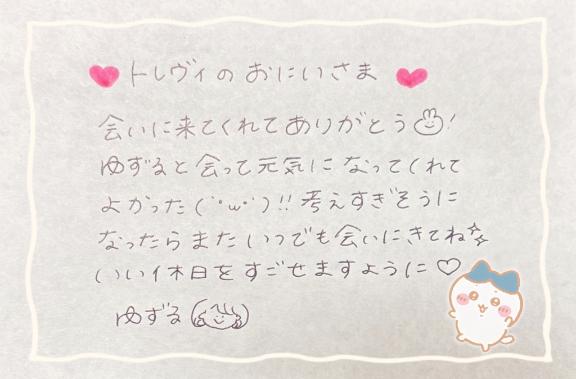 トレヴィのおにいさま
会いに来てくれてありがとう!
ゆずると会って元気になってくれて
よかった(˙ω˙)!! 考えすぎそうに
なったらまたいつでも会いにきてね
いい休日をすごせますように♡
ゆずる